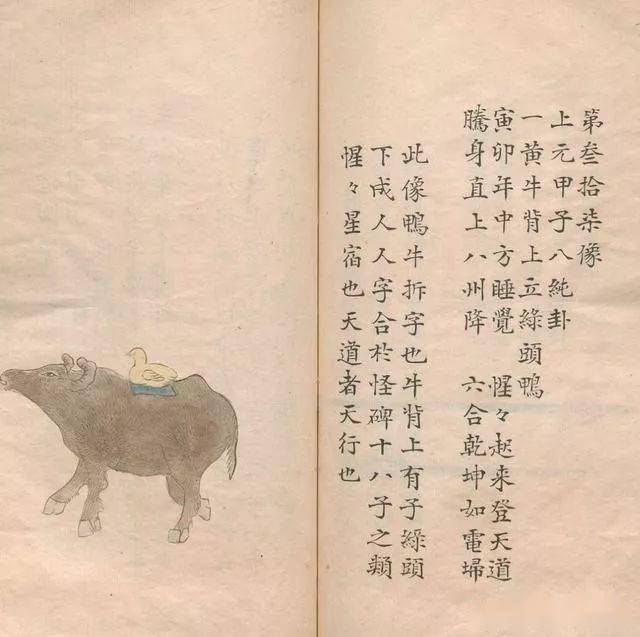 第叁拾柒像
上元甲子八純卦
一黄牛背上立綠頭鴨
寅卯年中方睡覺　惺々起来登天道
騰身直上八州降　六合乾坤如電埽
此像鴨牛拆字也牛背上有子綠頭
下成人人字合於怪碑十八子之類
惺々星宿也天道者天行也